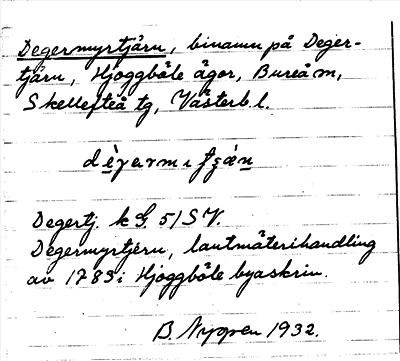 Degermyrtjärn, binamn på Deger-
tjärn, Hjoggböle ägor, Bureå sn,
Skellefteå tg, Västerb. l.
Degertj. k G. 51 SV.
Degermyrtjern, lantmäterihandling
av 1783 i Hjoggböle byaskrin.
B. Nygren 1932.